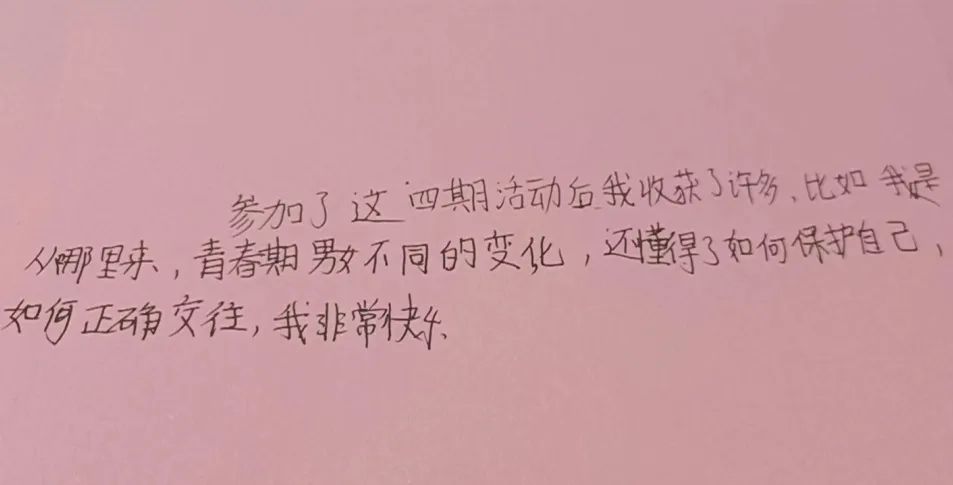 参加了这四期活动后我收获了许多、比如我是
从哪里来，青春期男女不同的变化，还懂得了如何保护自己，
如何正确交往，我非常快乐、